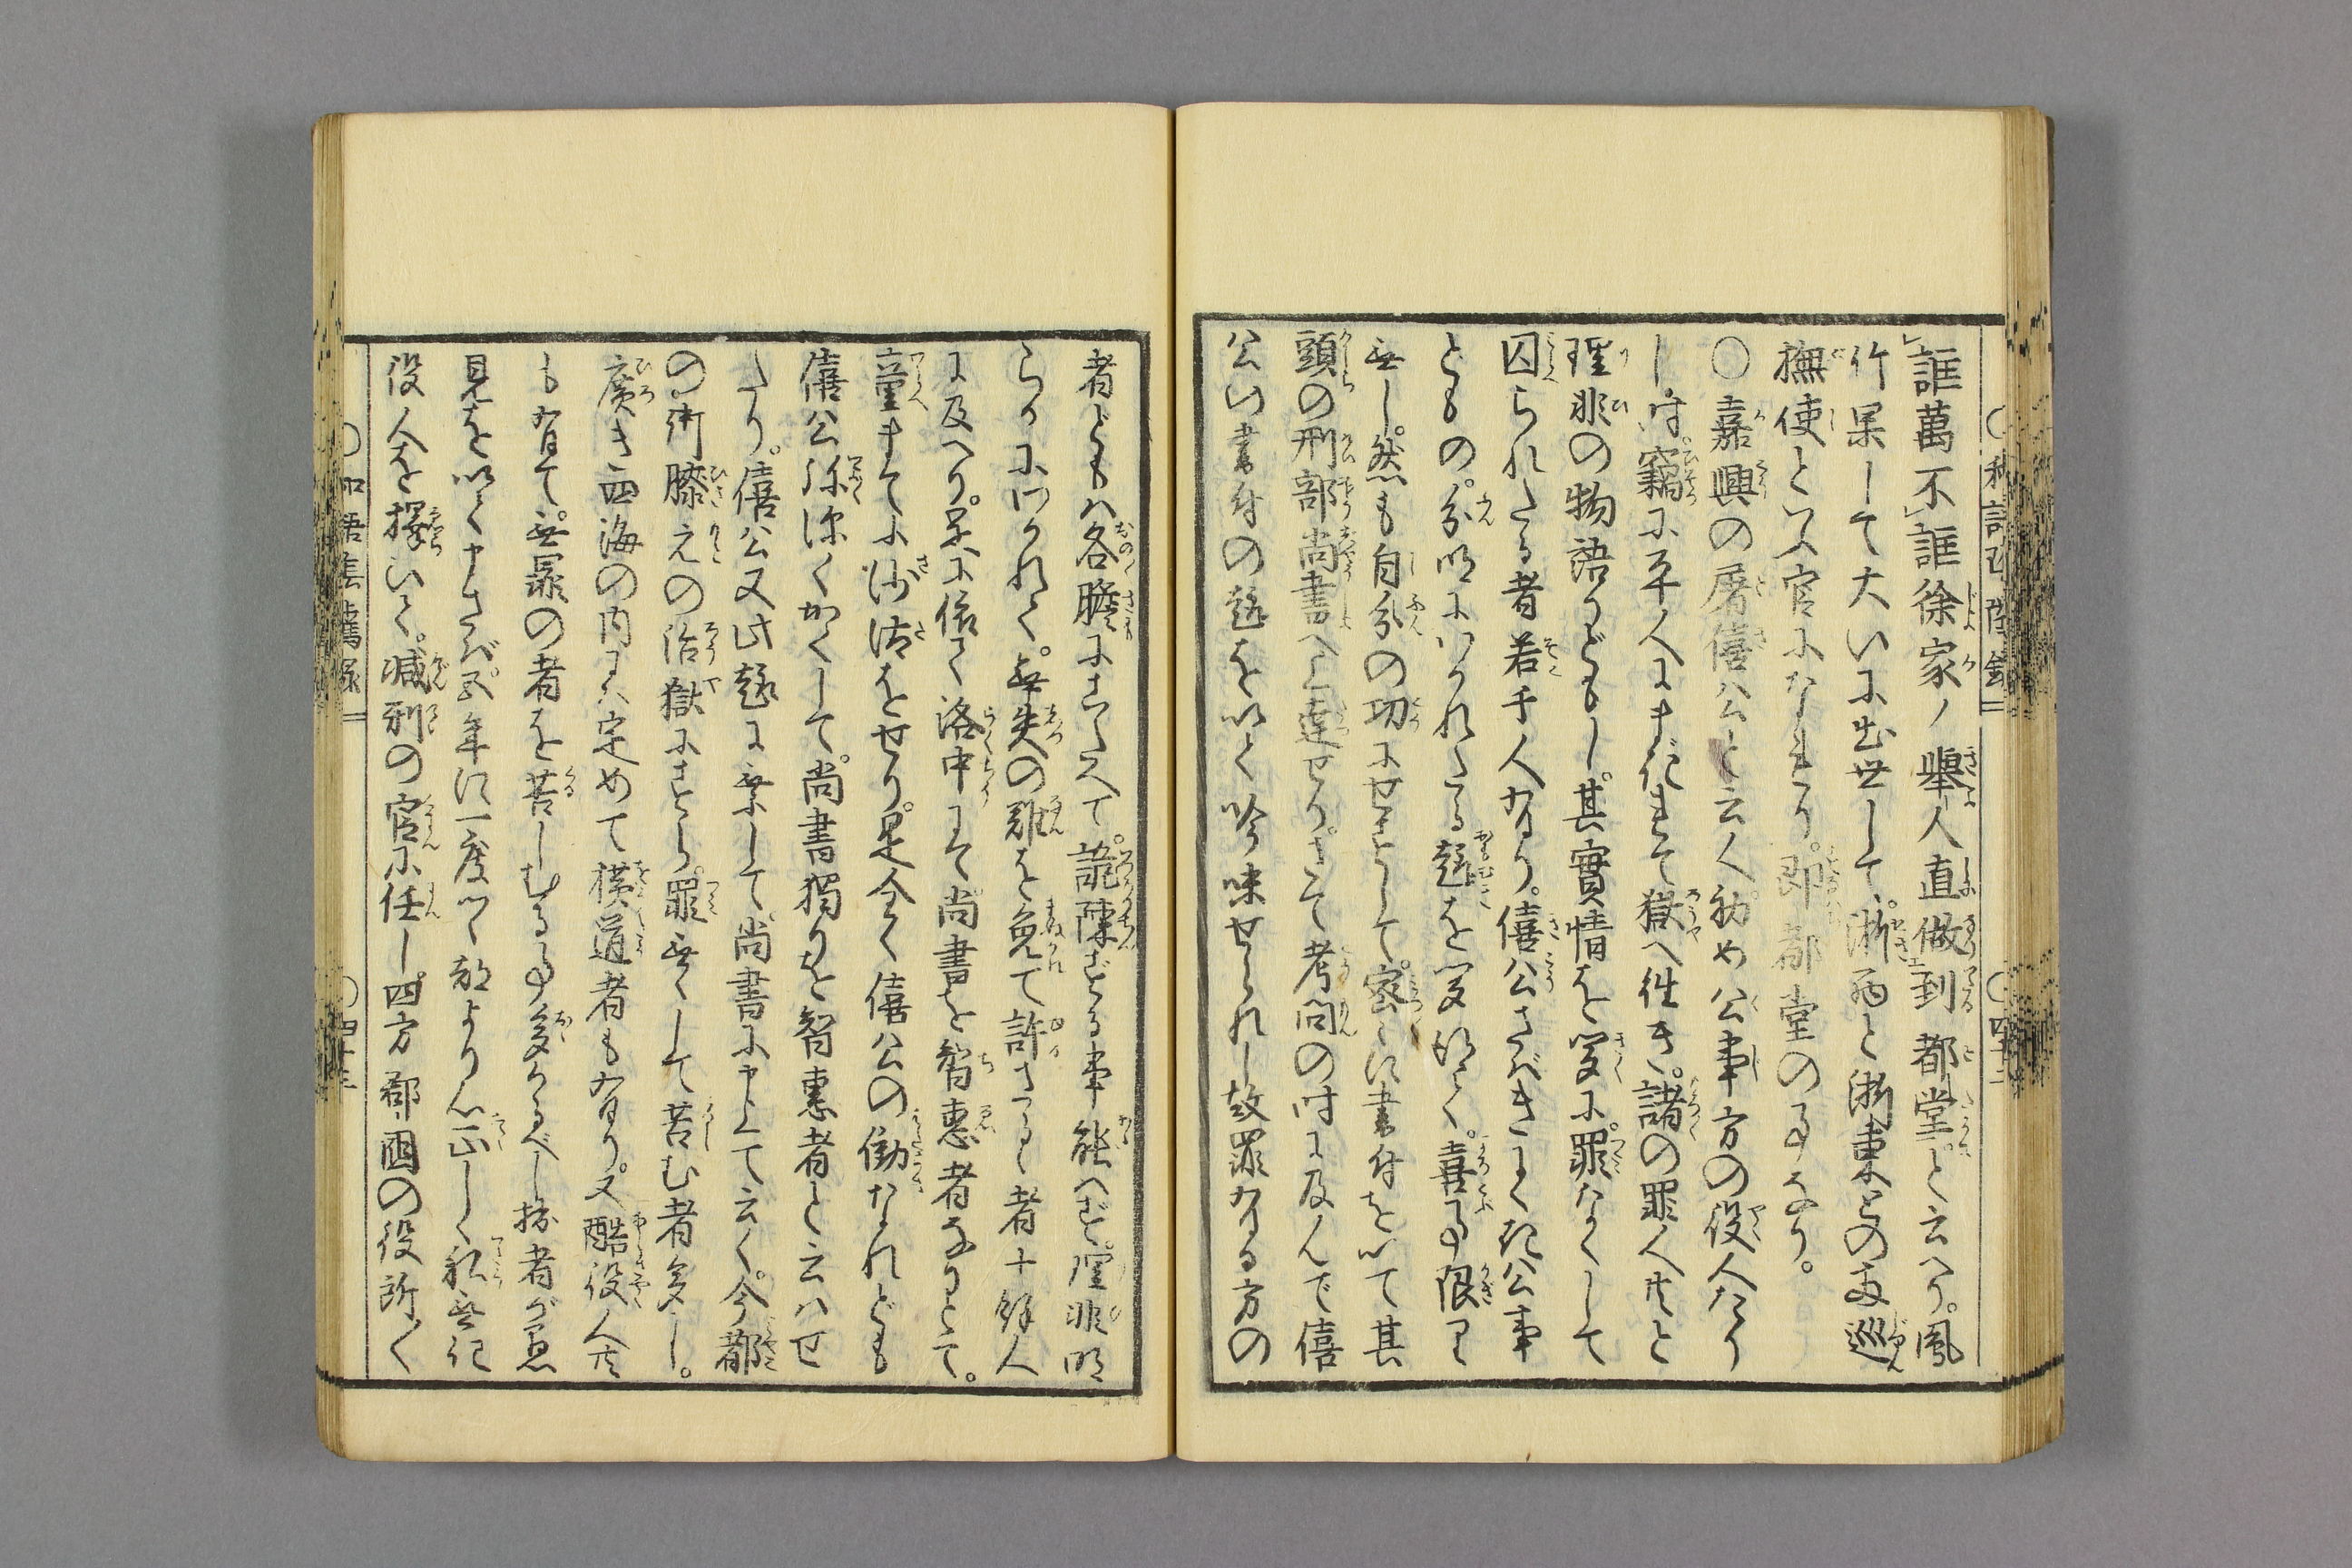 誆萬不誆徐家ノ舉人直做到都堂。と云へり。鳳
竹果して大いに出世して。浙西と浙東との両巡
撫使と云官になれり。即都堂の事なり。
○嘉興の屠僖公と云人。初め公事方の役人たり
し時。竊に平人にまぎれて獄へ往き。諸の罪人共と
理非の物語りどもし。其實情を聞くに。罪なくして
囚られたる者若干人有り。僖公さばきよく公事
ともの。分明にわかれたる趣を聞給て。喜事限り
無し。然も自分の功にせずして。密々に書付をいて其
頭の刑部尚書へ上達せり。さて考問の時に及んで僖
公の書付の趣を以て吟味せられし故罪有る方の
者どもハ各膽にこたへて。詭陳ずる事能へず。理非明
らかにわかれて。無失の難を免て許さるゝ者十餘人
に及へり。是に依て洛中にて尚書を智惠者なりとて。
童までに沙汰をせり。是全く僖公の働なれども
僖公深深くかくして。尚書獨りを智惠者と云ハせ
たり。僖公又此趣に乗して。尚書に申上て云く。今都
の御膝元の治獄にすら。罪無くして苦む者多し。
廣き四海の内にハ定めて横道者も有り。又酷役人共
も有て。無罪の者を苦しむる事多かるべし拙者が愚
見を以て申さば。五年に一度づゝ都より心正しく私無に
役人を擇いて。減刑の官に任し。四方郡國の役所〱